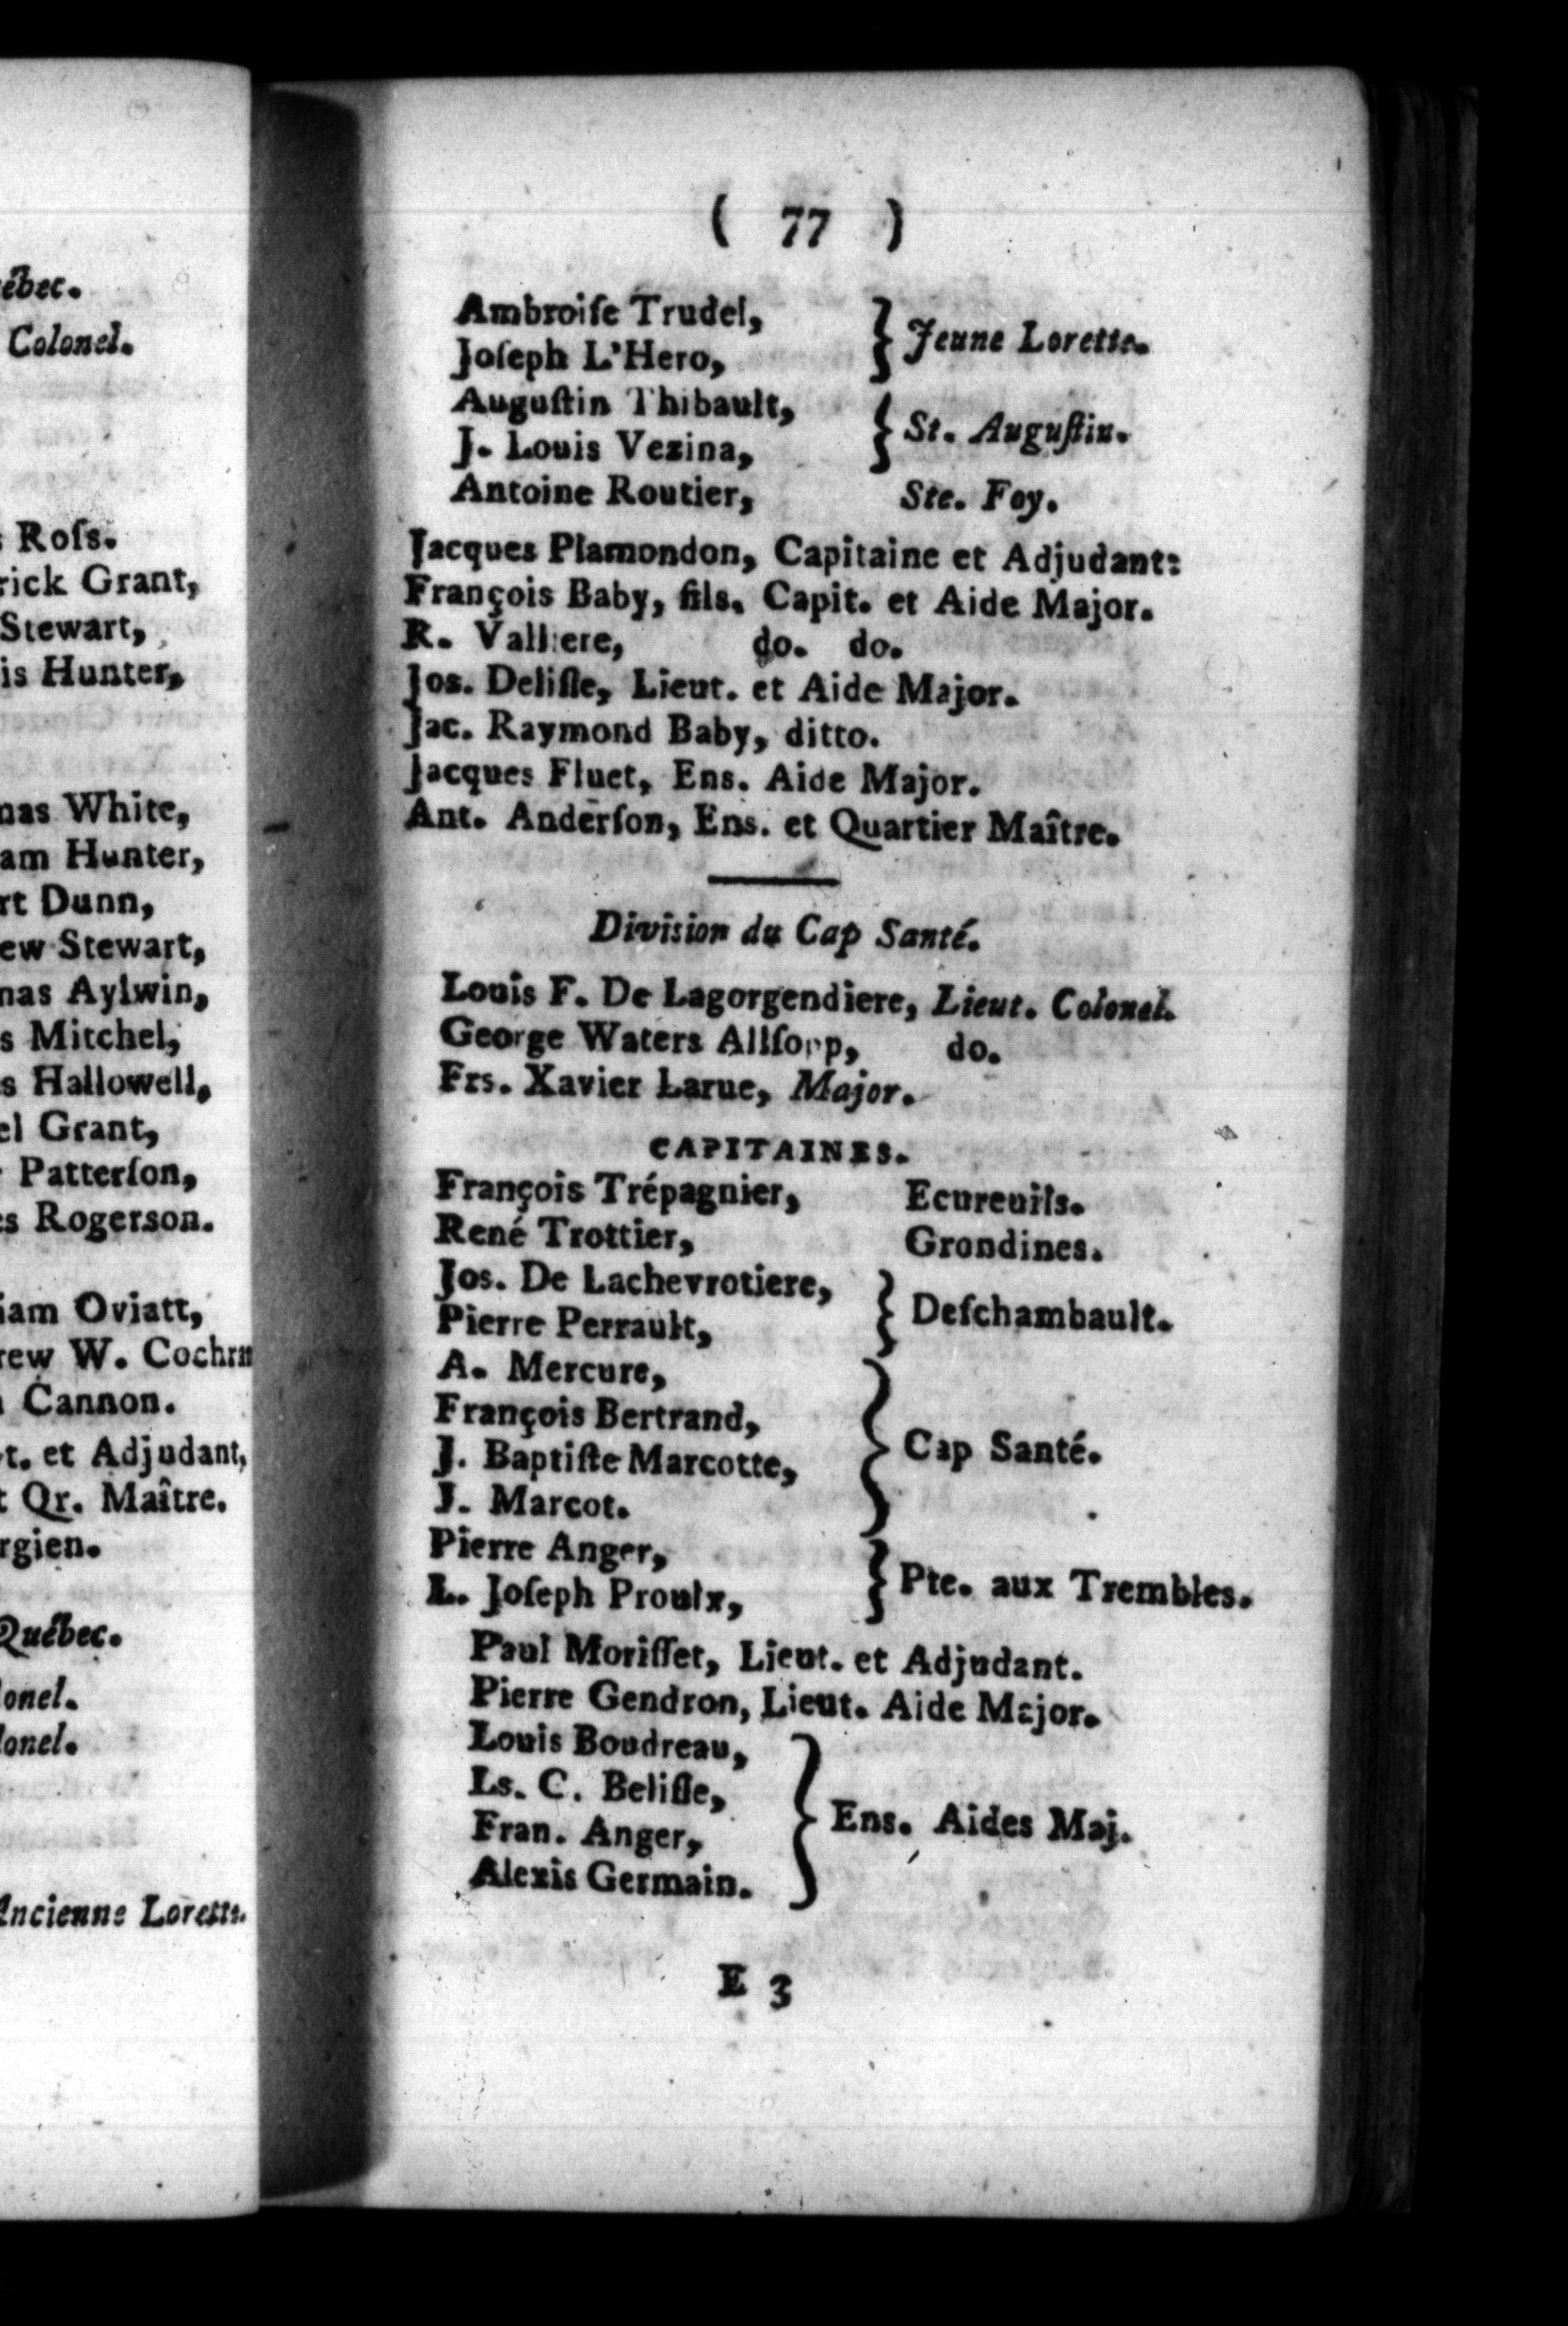 ébec.
Colonel.
Roſs.
rick Grant,
Stewart,
is Hunter,
nas White,
am Hunter,
rt Dunn,
ew Stewart,
nas Aylwin,
s Mitchel,
s Hallowell,
el Grant,
Patterſon,
es Rogerson.
iam Oviatt,
rew W. Cochran
Cannon.
t. et Adjudant,
t Qr. Maître.
rgien.
Québec.
onel.
lonel.
Ancienne Lorette.
( 77 )
Ambroiſe Trudel,
Joſeph L'Hero, } Jeune Lorette.
Auguſtin Thibault,
J. Louis Vezina, } St. Auguſtin.
Antoine Routier, Ste. Foy.
Jacques Plamondon, Capitaine et Adjudant:
François Baby, fils. Capit. et Aide Major.
R. Valliere, do. do.
Jos. Deliſle, Lieut. et Aide Major.
Jac. Raymond Baby, ditto.
Jacques Fluet, Ens. Aide Major.
Ant. Anderſon, Ens. et Quartier Maître.
Division du Cap Santé.
Louis F. De Lagorgendiere, Lieut. Colonel.
George Waters Allſopp, do.
Frs. Xavier Larue, Major.
CAPITAINES.
François Trépagnier, Ecureuils.
René Trottier, Grondines.
Jos. De Lachevrotiere,
Pierre Perrault, } Deſchambault.
A. Mercure,
François Bertrand,
J. Baptiſte Marcotte, } Cap Santé.
J. Marcot.
Pierre Anger,
L. Joſeph Proulx, } Pte. aux Trembles.
Paul Moriſſet, Lieut. et Adjudant.
Pierre Gendron, Lieut. Aide Major.
Louis Boudreau,
Ls. C. Beliſle,
Fran. Anger, } Ens. Aides Maj.
Alexis Germain.
E 3